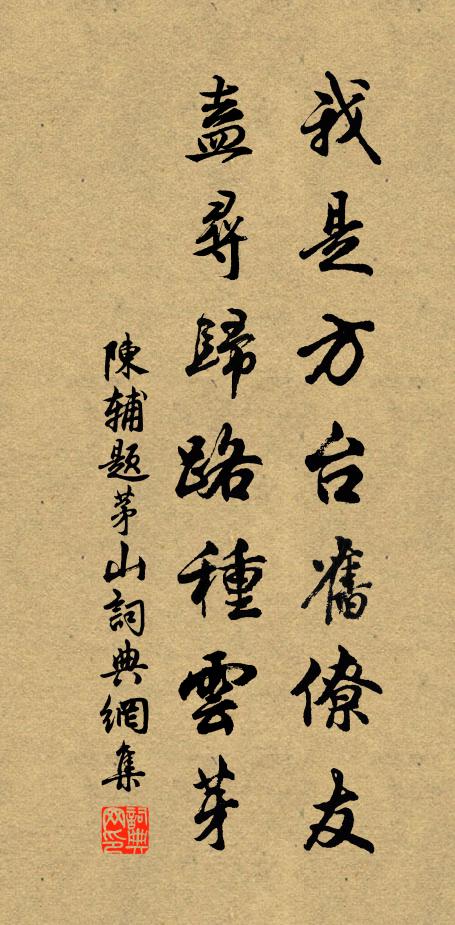 我是方台舊僚友
盍尋歸路種雲芽
陳輔題茅山詞典網集
詞典网印